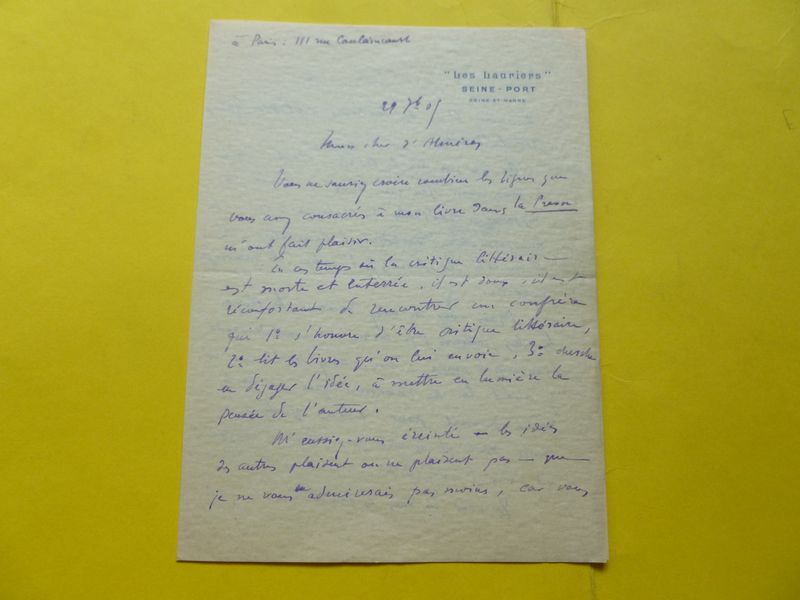 à Paris : 111 rue Caulaincourt
"Les Lauriers"
SEINE-PORT
SEINE-ET-MARNE
29 7b 05
Mon cher d'Alméras
Vous ne sauriez croire combien les lignes que
vous avez consacrés à mon livre dans la Presse
m'ont fait plaisir.
En ces temps où la critique littéraire
est morte et enterrée, il est doux, il est
réconfortant de rencontrer un confrère
qui 1º s'honore d'être critique littéraire,
2º lit les livres qu'on lui envoie, 3º cherche
à en dégager l'idée, à mettre en lumière la
pensée de l'auteur.
M'eussiez-vous éreinté — les idées
des autres plaisent ou ne plaisent pas — que
je ne vous en admirerais pas moins, car vous